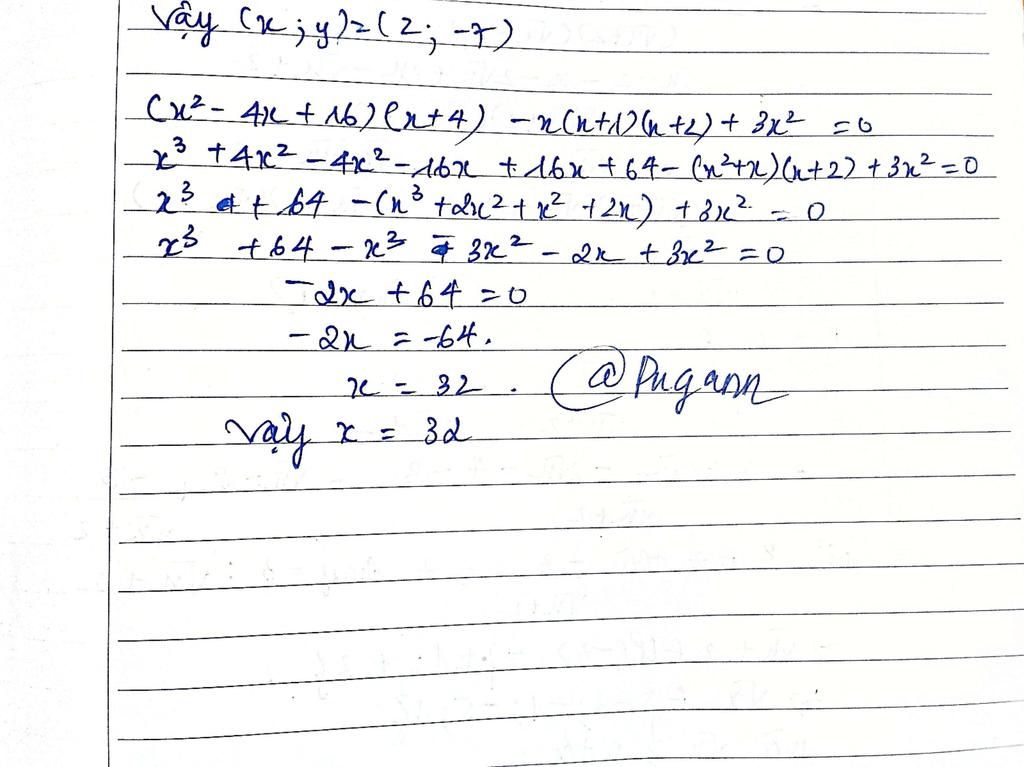 Vậy (x; y) = (2; -7)
(x² - 4x + 16)(x+4) - x(x+1)(x+2) + 3x² = 0
x³ + 4x² - 4x² - 16x + 16x + 64 - (x²+x)(x+2) + 3x² = 0
x³ + 64 - (x³ + 2x² + x² + 2x) + 3x² = 0
x³ + 64 - x³ - 3x² - 2x + 3x² = 0
-2x + 64 = 0
-2x = -64.
x = 32. @Pugann
Vậy x = 32